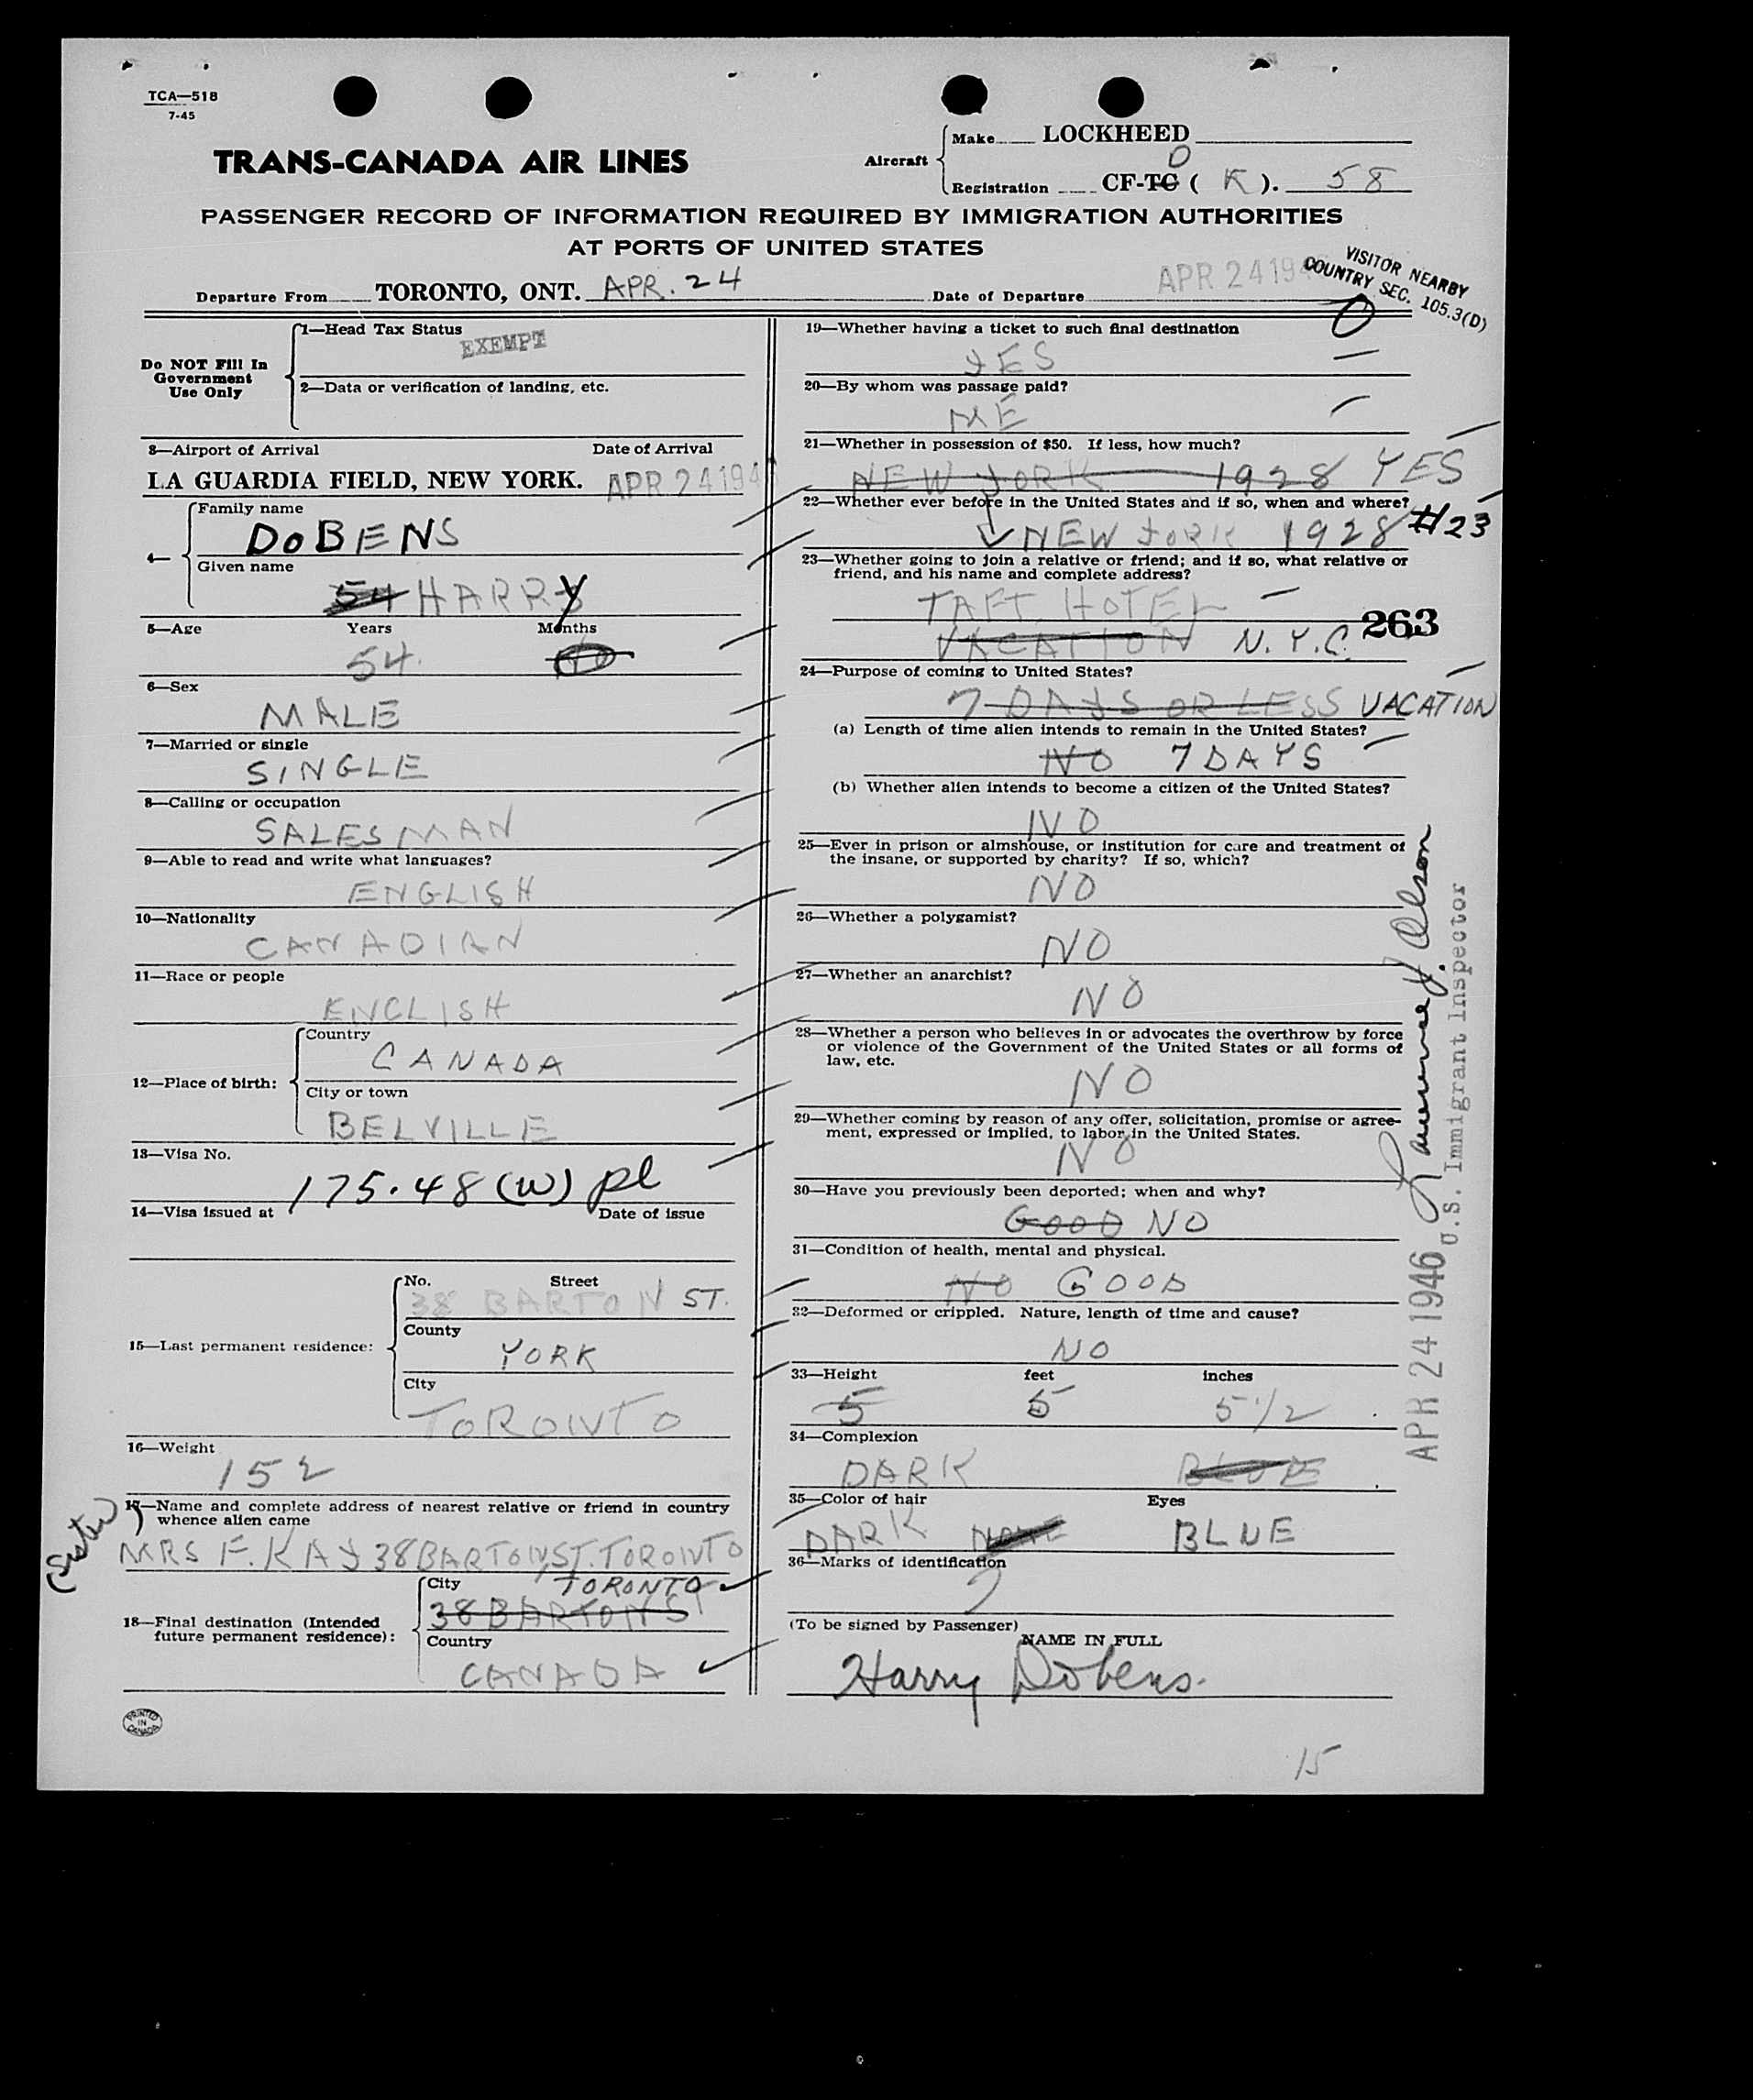 TCA—518
7-45
TRANS-CANADA AIR LINES
Aircraft
Make LOCKHEED
D
Registration CF-TC ( K ). 58
PASSENGER RECORD OF INFORMATION REQUIRED BY IMMIGRATION AUTHORITIES
AT PORTS OF UNITED STATES
VISITOR NEARBY
COUNTRY SEC. 105.3(D)
Departure From TORONTO, ONT. APR. 24
Date of Departure APR 24 194
Do NOT Fill In
Government
Use Only
1—Head Tax Status
EXEMPT
2—Data or verification of landing, etc.
3—Airport of Arrival Date of Arrival
LA GUARDIA FIELD, NEW YORK. APR 24 194
4—
Family name
DOBENS
Given name
54 HARRY
5—Age Years Months
54
6—Sex
MALE
7—Married or single
SINGLE
8—Calling or occupation
SALESMAN
9—Able to read and write what languages?
ENGLISH
10—Nationality
CANADIAN
11—Race or people
ENGLISH
12—Place of birth:
Country
CANADA
City or town
BELVILLE
13—Visa No.
175.48 (W) pl
14—Visa issued at Date of issue
15—Last permanent residence:
No. Street
38 BARTON ST.
County
YORK
City
TORONTO
16—Weight
152
(Sister)
17—Name and complete address of nearest relative or friend in country
whence alien came
MRS F. KAY 38 BARTON, ST. TORONTO
18—Final destination (Intended
future permanent residence):
City TORONTO
38 BARTON ST
Country
CANADA
PRINTED
IN
CANADA
19—Whether having a ticket to such final destination
YES
20—By whom was passage paid?
ME
21—Whether in possession of $50. If less, how much?
NEW YORK 1928 YES
22—Whether ever before in the United States and if so, when and where?
NEW YORK 1928 #23
23—Whether going to join a relative or friend; and if so, what relative or
friend, and his name and complete address?
TAFT HOTEL
263
VACATION N.Y.C.
24—Purpose of coming to United States?
7 DAYS OR LESS VACATION
(a) Length of time alien intends to remain in the United States?
NO 7 DAYS
(b) Whether alien intends to become a citizen of the United States?
NO
25—Ever in prison or almshouse, or institution for care and treatment of
the insane, or supported by charity? If so, which?
NO
26—Whether a polygamist?
NO
27—Whether an anarchist?
NO
28—Whether a person who believes in or advocates the overthrow by force
or violence of the Government of the United States or all forms of
law, etc.
NO
29—Whether coming by reason of any offer, solicitation, promise or agree-
ment, expressed or implied, to labor in the United States.
NO
30—Have you previously been deported; when and why?
GOOD NO
31—Condition of health, mental and physical.
NO GOOD
32—Deformed or crippled. Nature, length of time and cause?
NO
33—Height feet inches
5 5 5 1/2
34—Complexion
DARK BLUE
35—Color of hair Eyes
DARK NONE BLUE
36—Marks of identification
(To be signed by Passenger)
NAME IN FULL
Harry Dobens.
15
Lawrence J. Olson
U.S. Immigrant Inspector
APR 24 1946